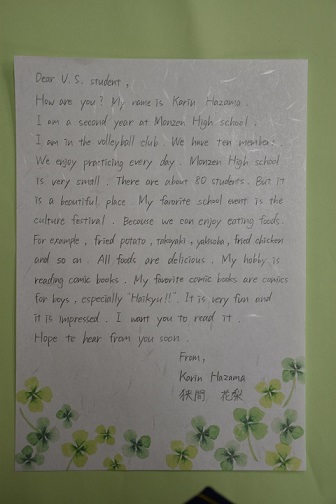 Dear U.S. student,
How are you? My name is Karin Hazama.
I am a second year at Monzen High school.
I am in the volleyball club. We have ten member.
We enjoy practicing every day. Monzen High school
is very small. There are about 80 students. But it
is a beautiful place. My favorite school event is the
culture festival. Because we can enjoy eating foods.
For example, fried potato, takoyaki, yakisoba, fried chicken
and so on. All foods are delicious. My hobby is
reading comic books. My favorite comic books are comics
for boys, especially "Haikyu!!". It is very fun and
it is impressed. I want you to read it.
Hope to hear from you soon.
From,
Karin Hazama
狭間 花梨